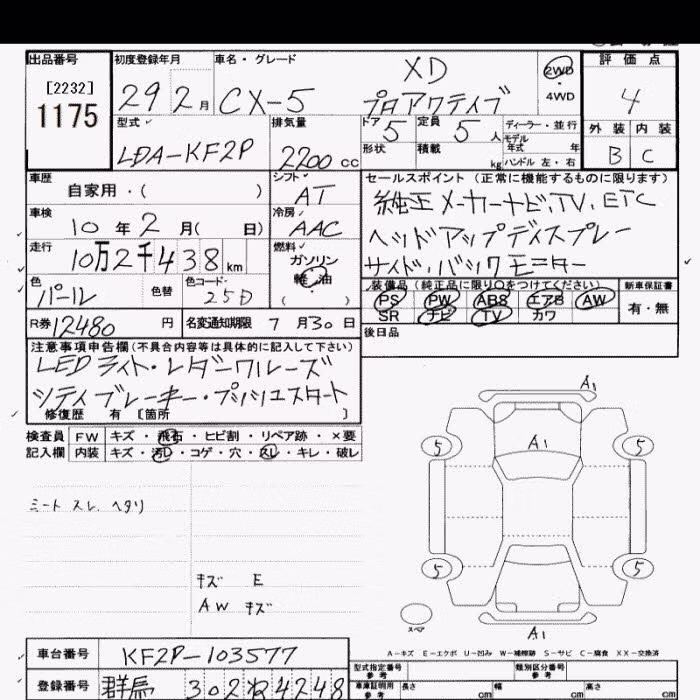 出品番号 初度登録年月 車名・グレード 評価点
[2232]
1175
29 2月 CX-5 XD プロアクティブ
2WD
・
4WD
4
型式 排気量 ドア 定員 ディーラー・並行 外装 内装
LDA-KF2P 2200cc 5 5人 モデル年式 年 B C
形状 積載 kg ハンドル 左・右
車歴 シフト セールスポイント (正常に機能するものに限ります)
自家用・( ) AT 純正メーカーナビ、TV、ETC
車検 冷房 ヘッドアップディスプレー
10年2月( 日) AAC サイド、バックモニター
走行 燃料
10万2千438km ガソリン
軽・油
( )
色 色替 色コード 装備品 (純正品に限り○をつけてください) 新車保証書
パール 25D PS PW ABS エアB AW 有・無
SR ナビ TV カワ
R券 12480円 名変通知期限 7月30日 後日品
注意事項申告欄(不具合内容等は具体的に記入して下さい)
LEDライト・レダークルーズ
シティブレーキ・プッシュスタート
修復歴 有 [箇所 ]
検査員 FW キズ・飛石・ヒビ割・リペア跡・×要
記入欄 内装 キズ・汚レ・コゲ・穴・スレ・キレ・破レ
ミート スレ、ヘタリ
キズ E
AW キズ
A1
5 A1 5
5 5
スペア A1
A-キズ E-エクボ U-凹み W-補修跡 S-サビ C-腐食 XX-交換済
車台番号 KF2P-103577 型式指定番号 参考 類別区分番号 参考
登録番号 群馬 302 4248 車庫証明用 参考 長さ cm 幅 cm 高さ cm